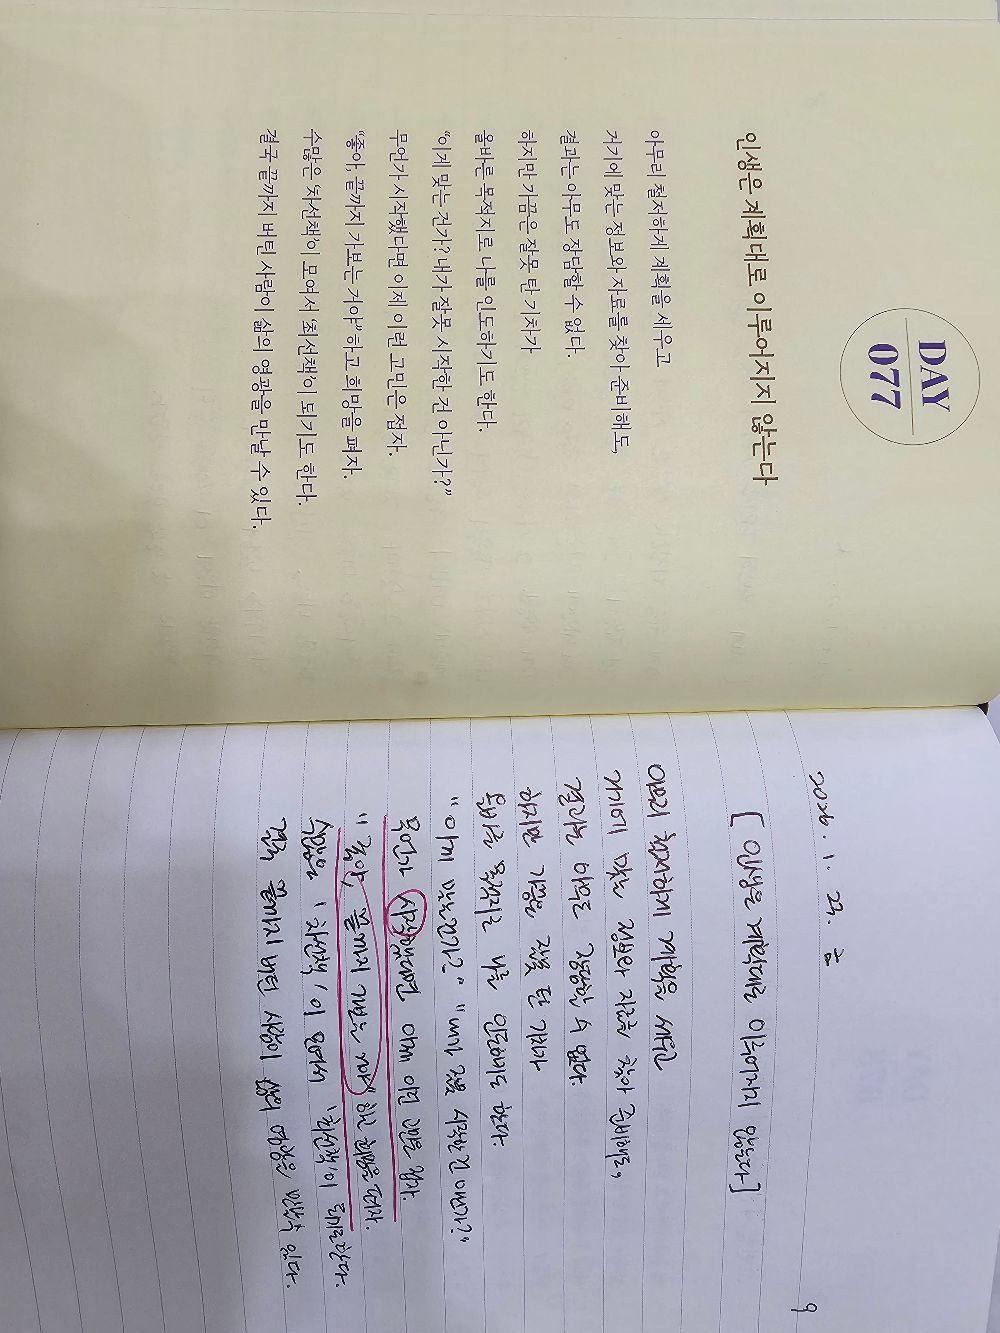 DAY
077
인생은 계획대로 이루어지지 않는다
아무리 철저하게 계획을 세우고
거기에 맞는 정보와 자료를 찾아 준비해도,
결과는 아무도 장담할 수 없다.
하지만 가끔은 잘못 탄 기차가
올바른 목적지로 나를 인도하기도 한다.
“이게 맞는 건가? 내가 잘못 시작한 건 아닌가?”
무언가 시작했다면 이제 이런 고민은 접자.
“좋아, 끝까지 가보는 거야” 하고 희망을 펴자.
수많은 ‘차선책’이 모여서 ‘최선책’이 되기도 한다.
결국 끝까지 버틴 사람이 삶의 영광을 만날 수 있다.
2026. 1. 23. 금
9
[ 인생은 계획대로 이루어지지 않는다 ]
아무리 철저하게 계획을 세우고
거기에 맞는 정보와 자료를 찾아 준비해도,
결과는 아무도 장담할 수 없다.
하지만 가끔은 잘못 탄 기차가
올바른 목적지로 나를 인도하기도 한다.
"이게 맞는건가? "내가 잘못 시작한 건 아닌가?"
무언가 시작했다면 이제 이런 고민은 접자.
"좋아, 끝까지 가보는 거야" 하고 희망을 펴자.
수많은 '차선책'이 모여서 '최선책'이 되기도 한다.
결국 끝까지 버틴 사람이 삶의 영광을 만날 수 있다.